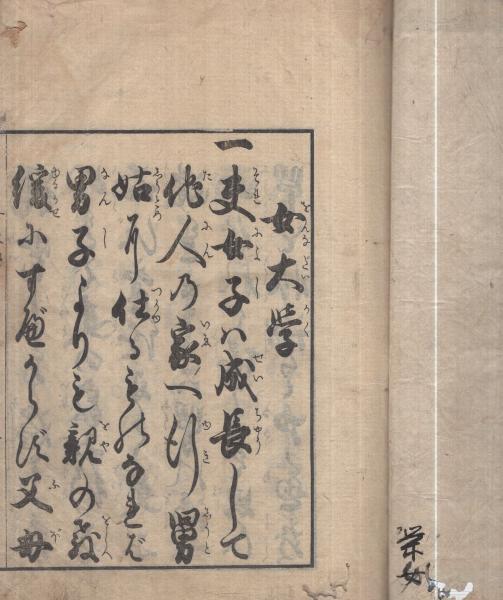 栄女
女大学
一夫女子ハ成長して
他人の家へ行舅
姑に仕るものなれば
男子よりも親の教
緩にすべからず父母